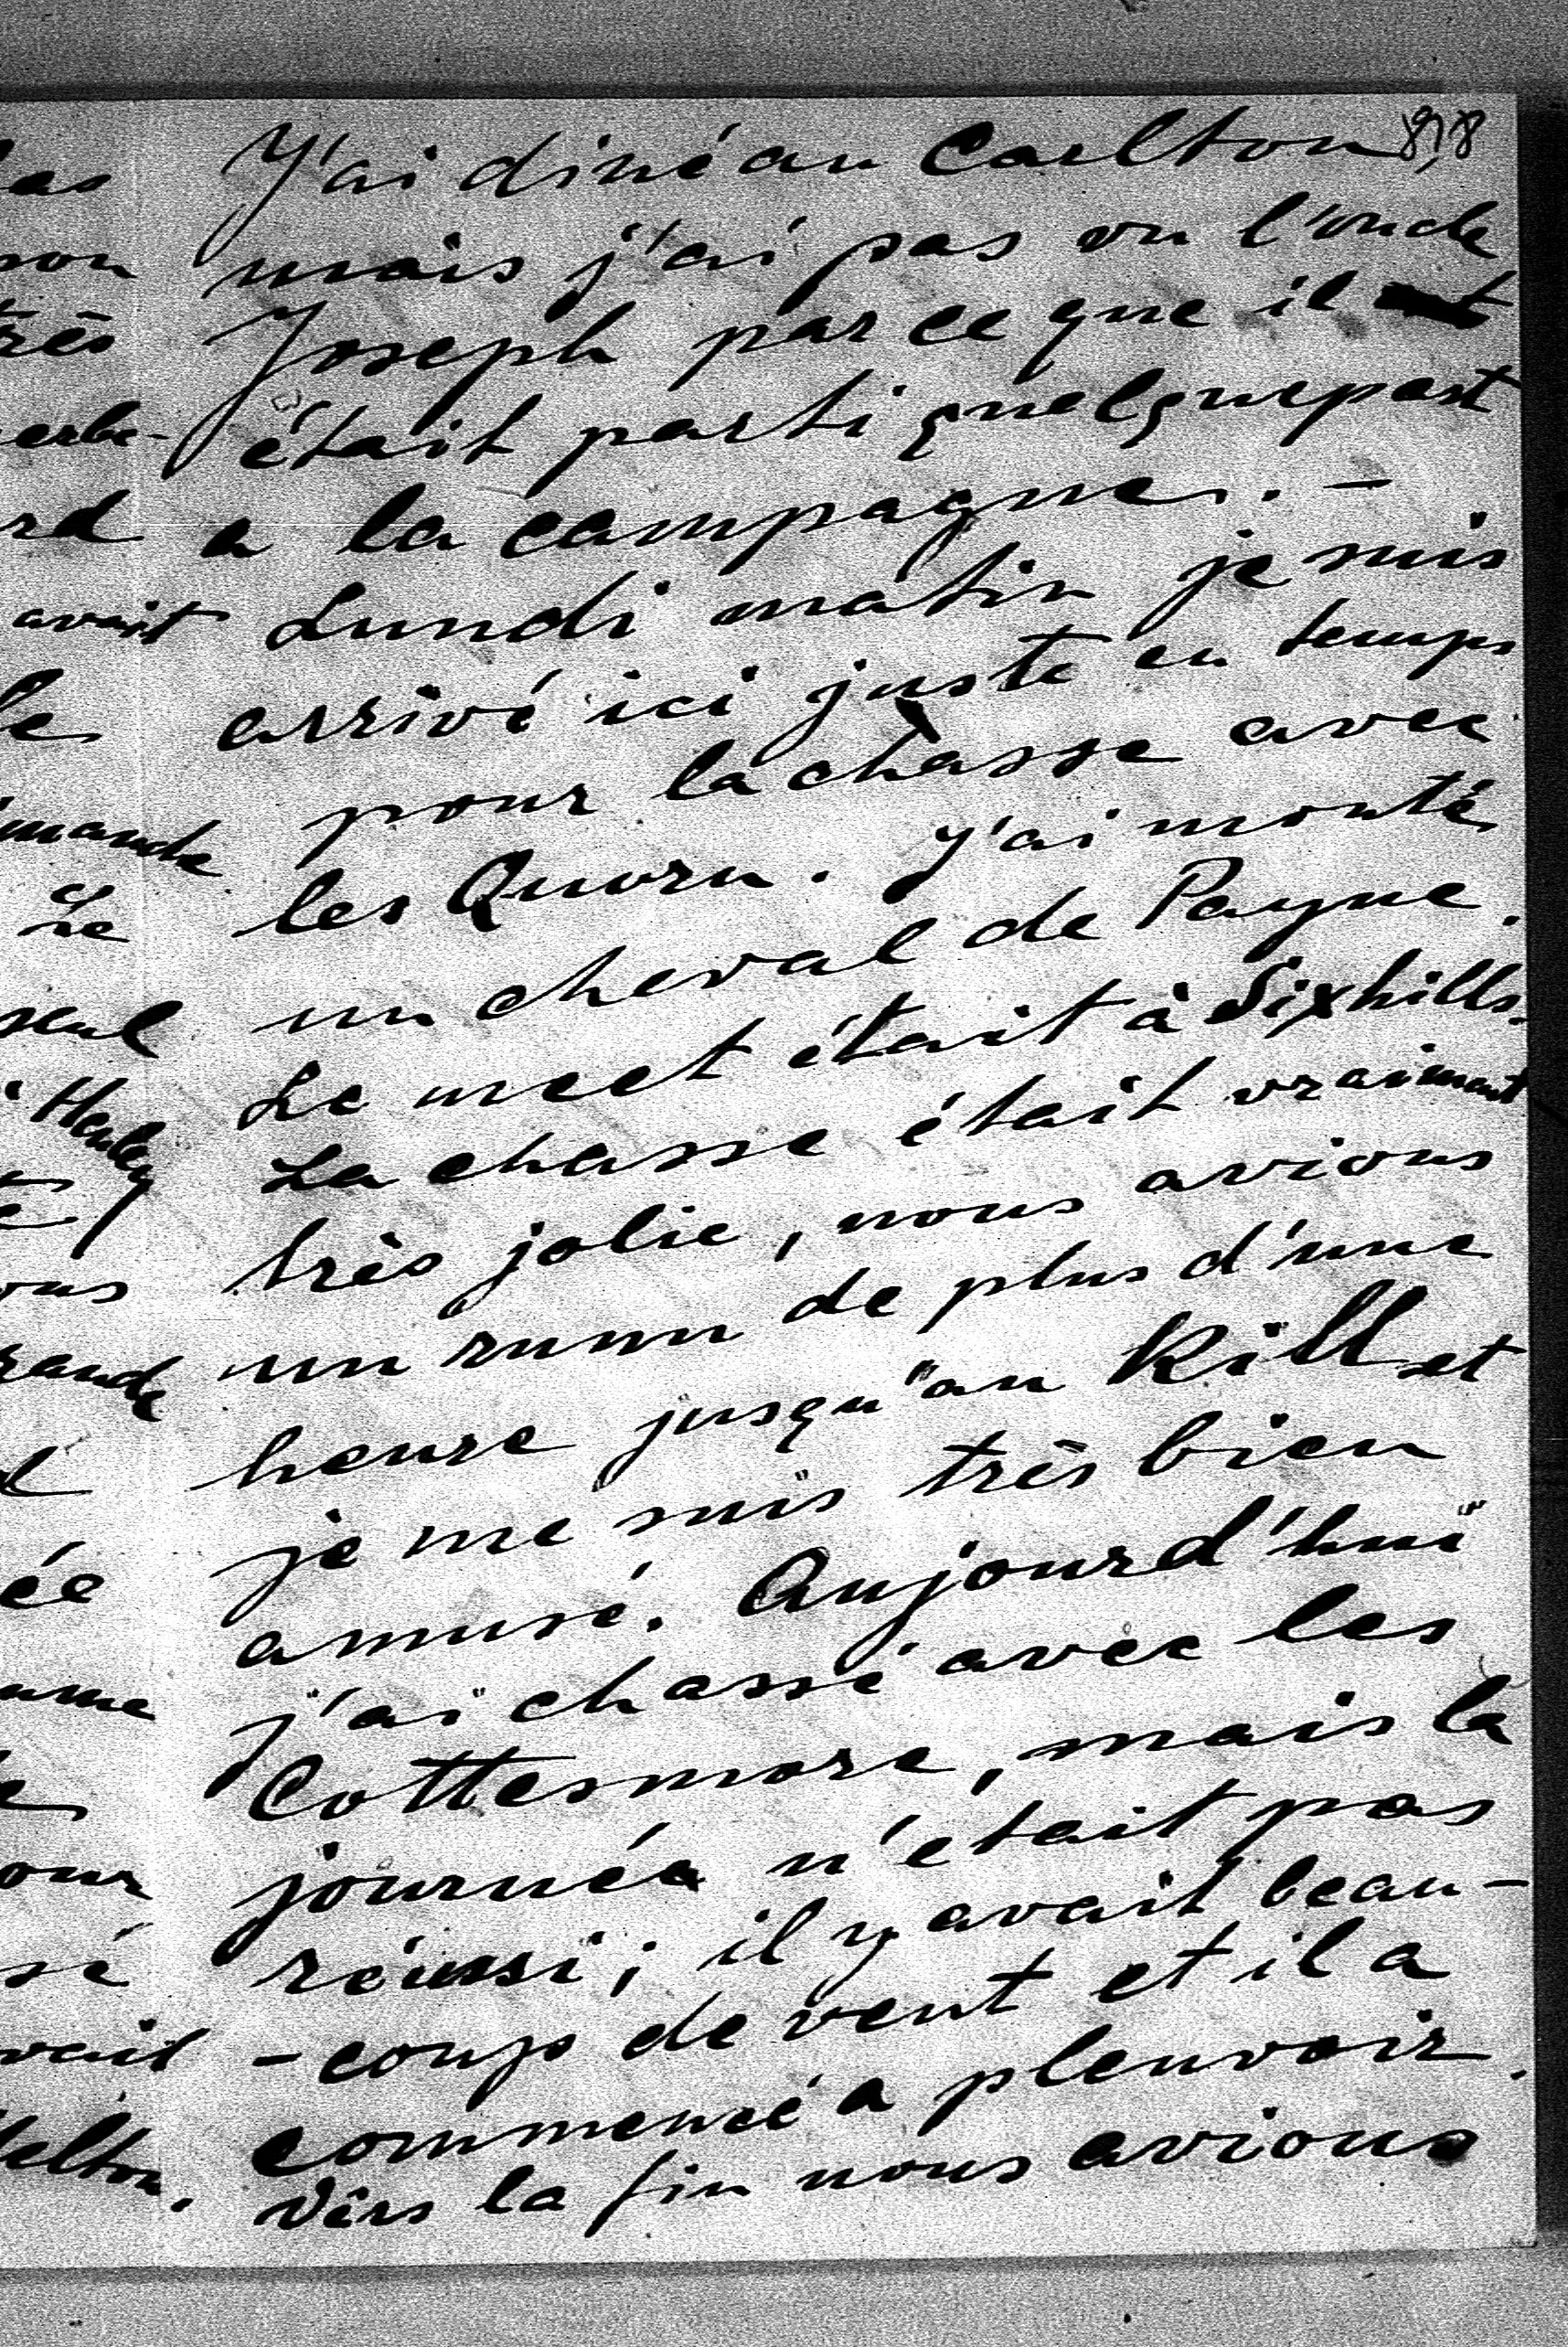 J'ai diné au Carlton
mais j'ai pas vu l'oncle
Joseph parce que il
était parti quelquepart
a la campagne. —
Lundi matin je suis
arrivé ici juste en temps
pour la chasse avec
les Quorn. J'ai monté
un cheval de Payne.
Le meet était à Sixhills.
La chasse était vraiment
très jolie, nous avions
un runn de plus d'une
heure jusqu'au Kill et
je me suis très bien
amusé. Aujourd'hui
j'ai chassé avec les
Cottesmore, mais la
journée n'était pas
réussi; il y avait beau-
-coup de vent et il a
commencé a pleuvoir.
Vèrs la fin nous avions